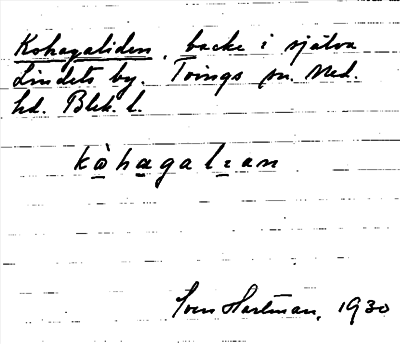 Kohagaliden, backe i själva
Lindets by. Tvings sn. Med.
hd. Blek. l.
kὼhagalian
Sven Hartman, 1930